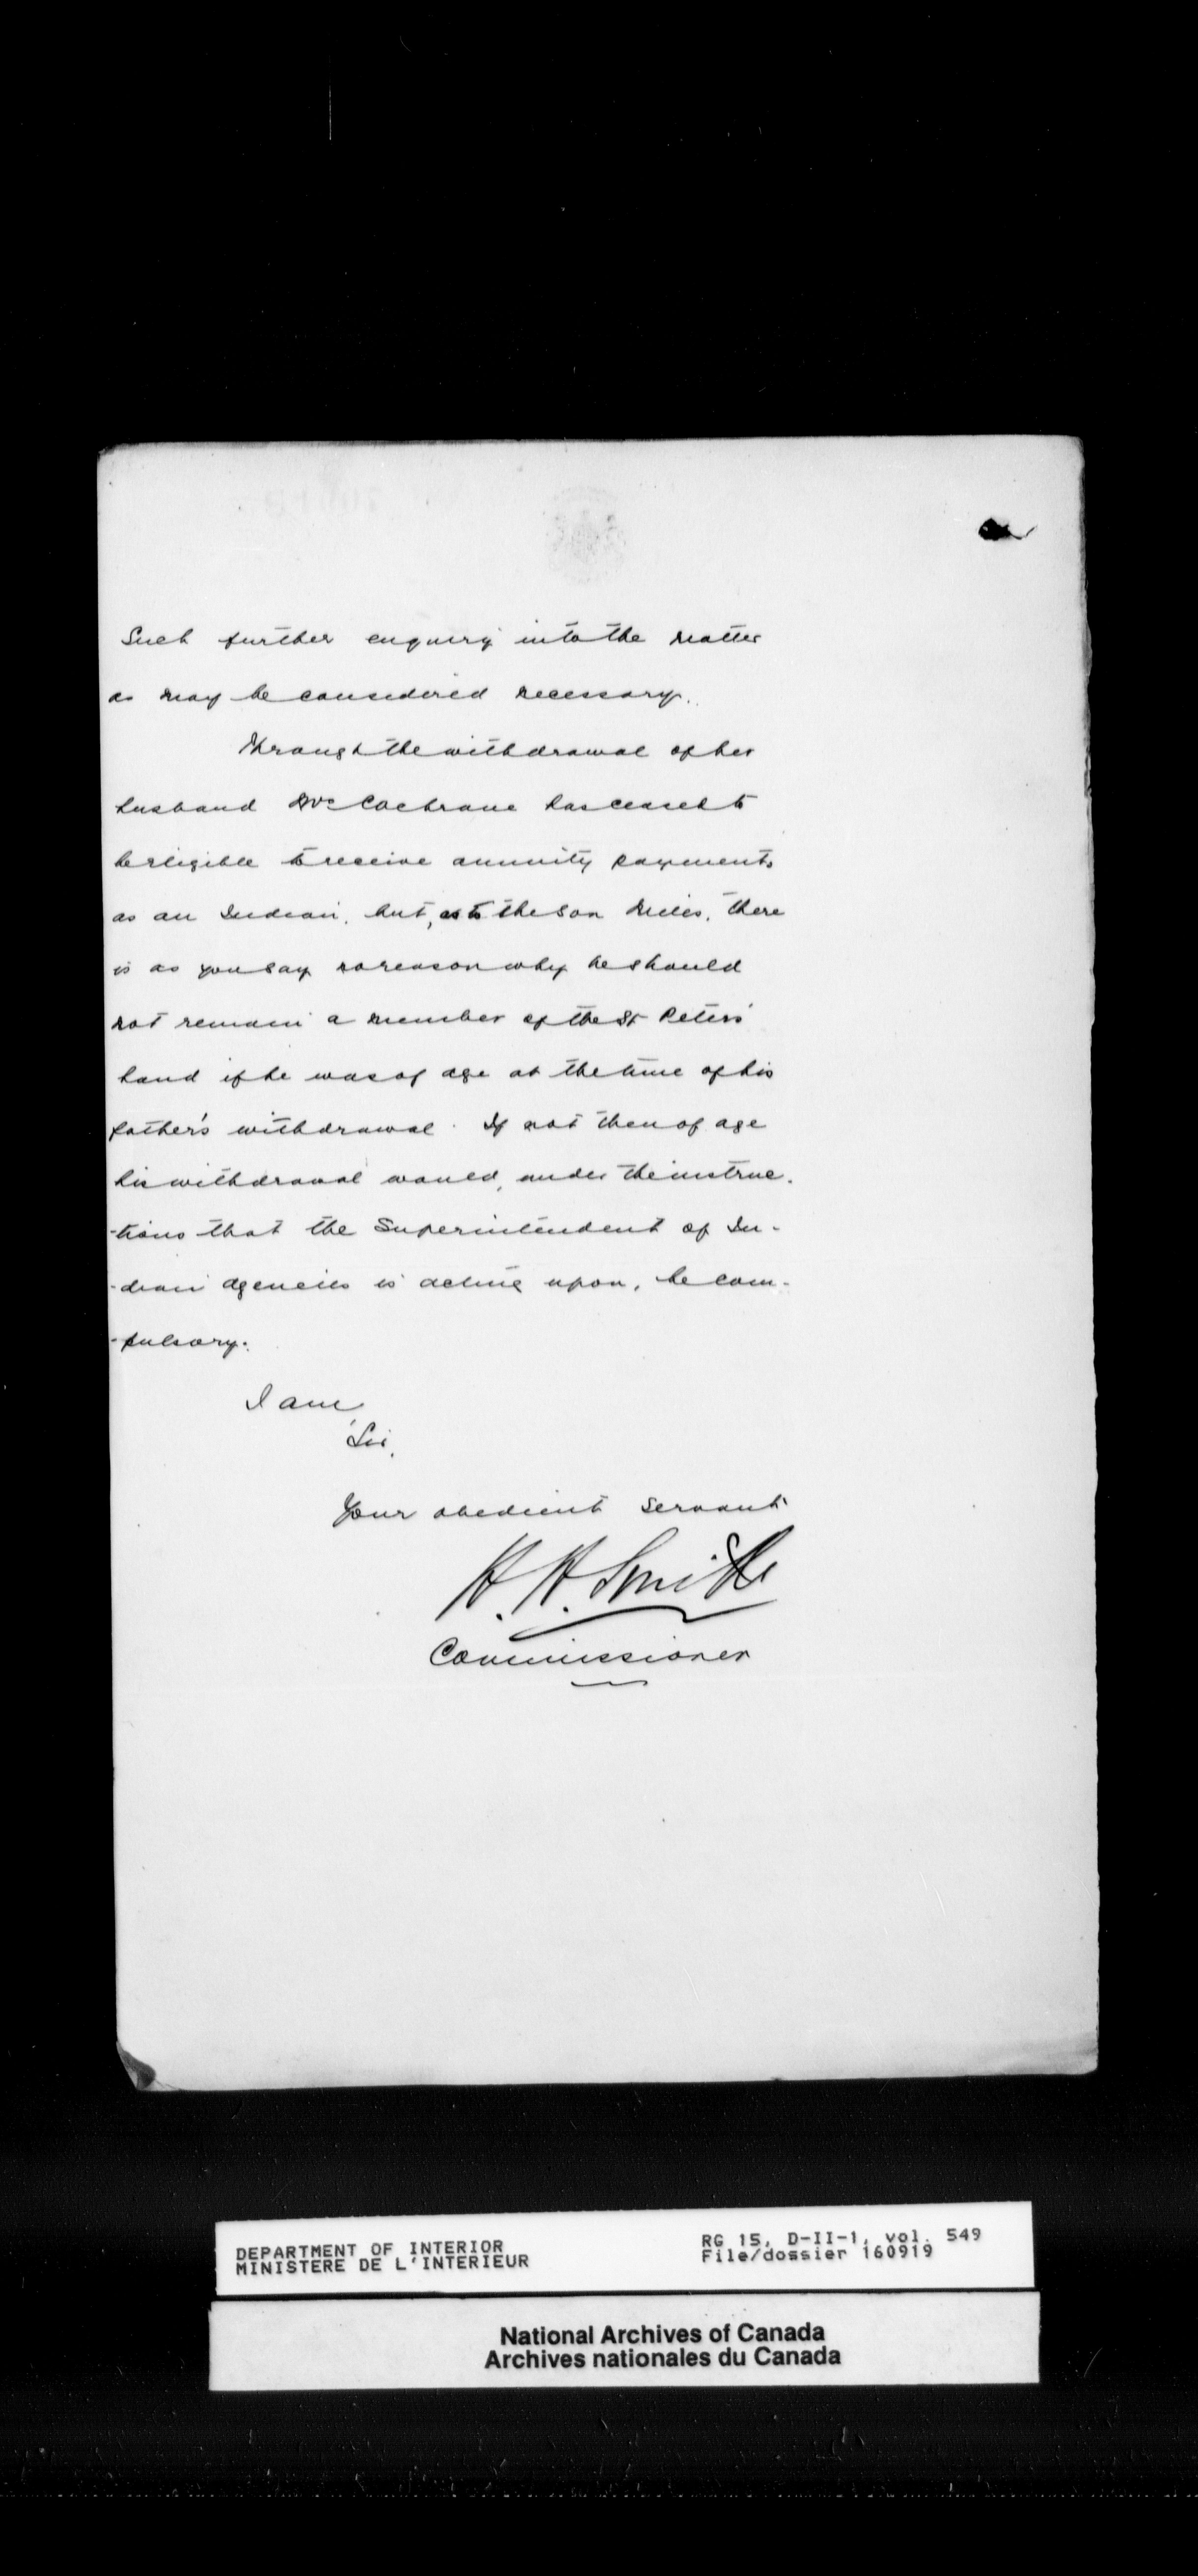 Such further enquiry into the matter
as may be considered necessary.
Through the withdrawal of her
husband Mrs Cochrane has ceased to
be eligible to receive annuity payments
as an Indian, but, as to the son Miles, there
is as you say no reason why he should
not remain a member of the St Peters'
band if he was of age at the time of his
father's withdrawal. If not then of age
his withdrawal would, under the instruc-
-tions that the Superintendent of In-
-dian agencies is acting upon, be com-
-pulsory.
I am,
Sir,
Your obedient servant
H. H. Smith
Commissioner
DEPARTMENT OF INTERIOR
MINISTERE DE L'INTERIEUR
RG 15, D-II-1, vol. 549
File/dossier 160919
National Archives of Canada
Archives nationales du Canada